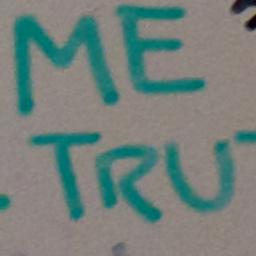 ME
TRU